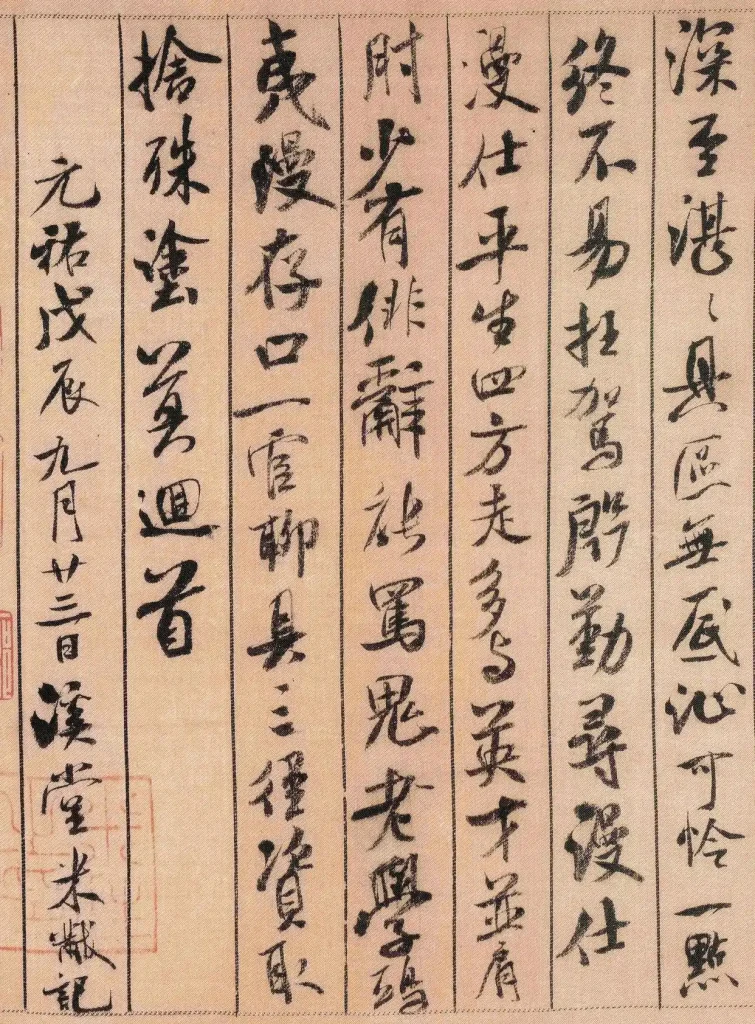 深至湛〻具區無底沚可怜一點
終不易枉駕殷勤尋漫仕
漫仕平生四方走多与英才並肩
肘少有俳辭能罵鬼老學鴟
夷漫存口一官聊具三徑資取
捨殊塗莫迴首
元祐戊辰九月廿三日溪堂米黻記